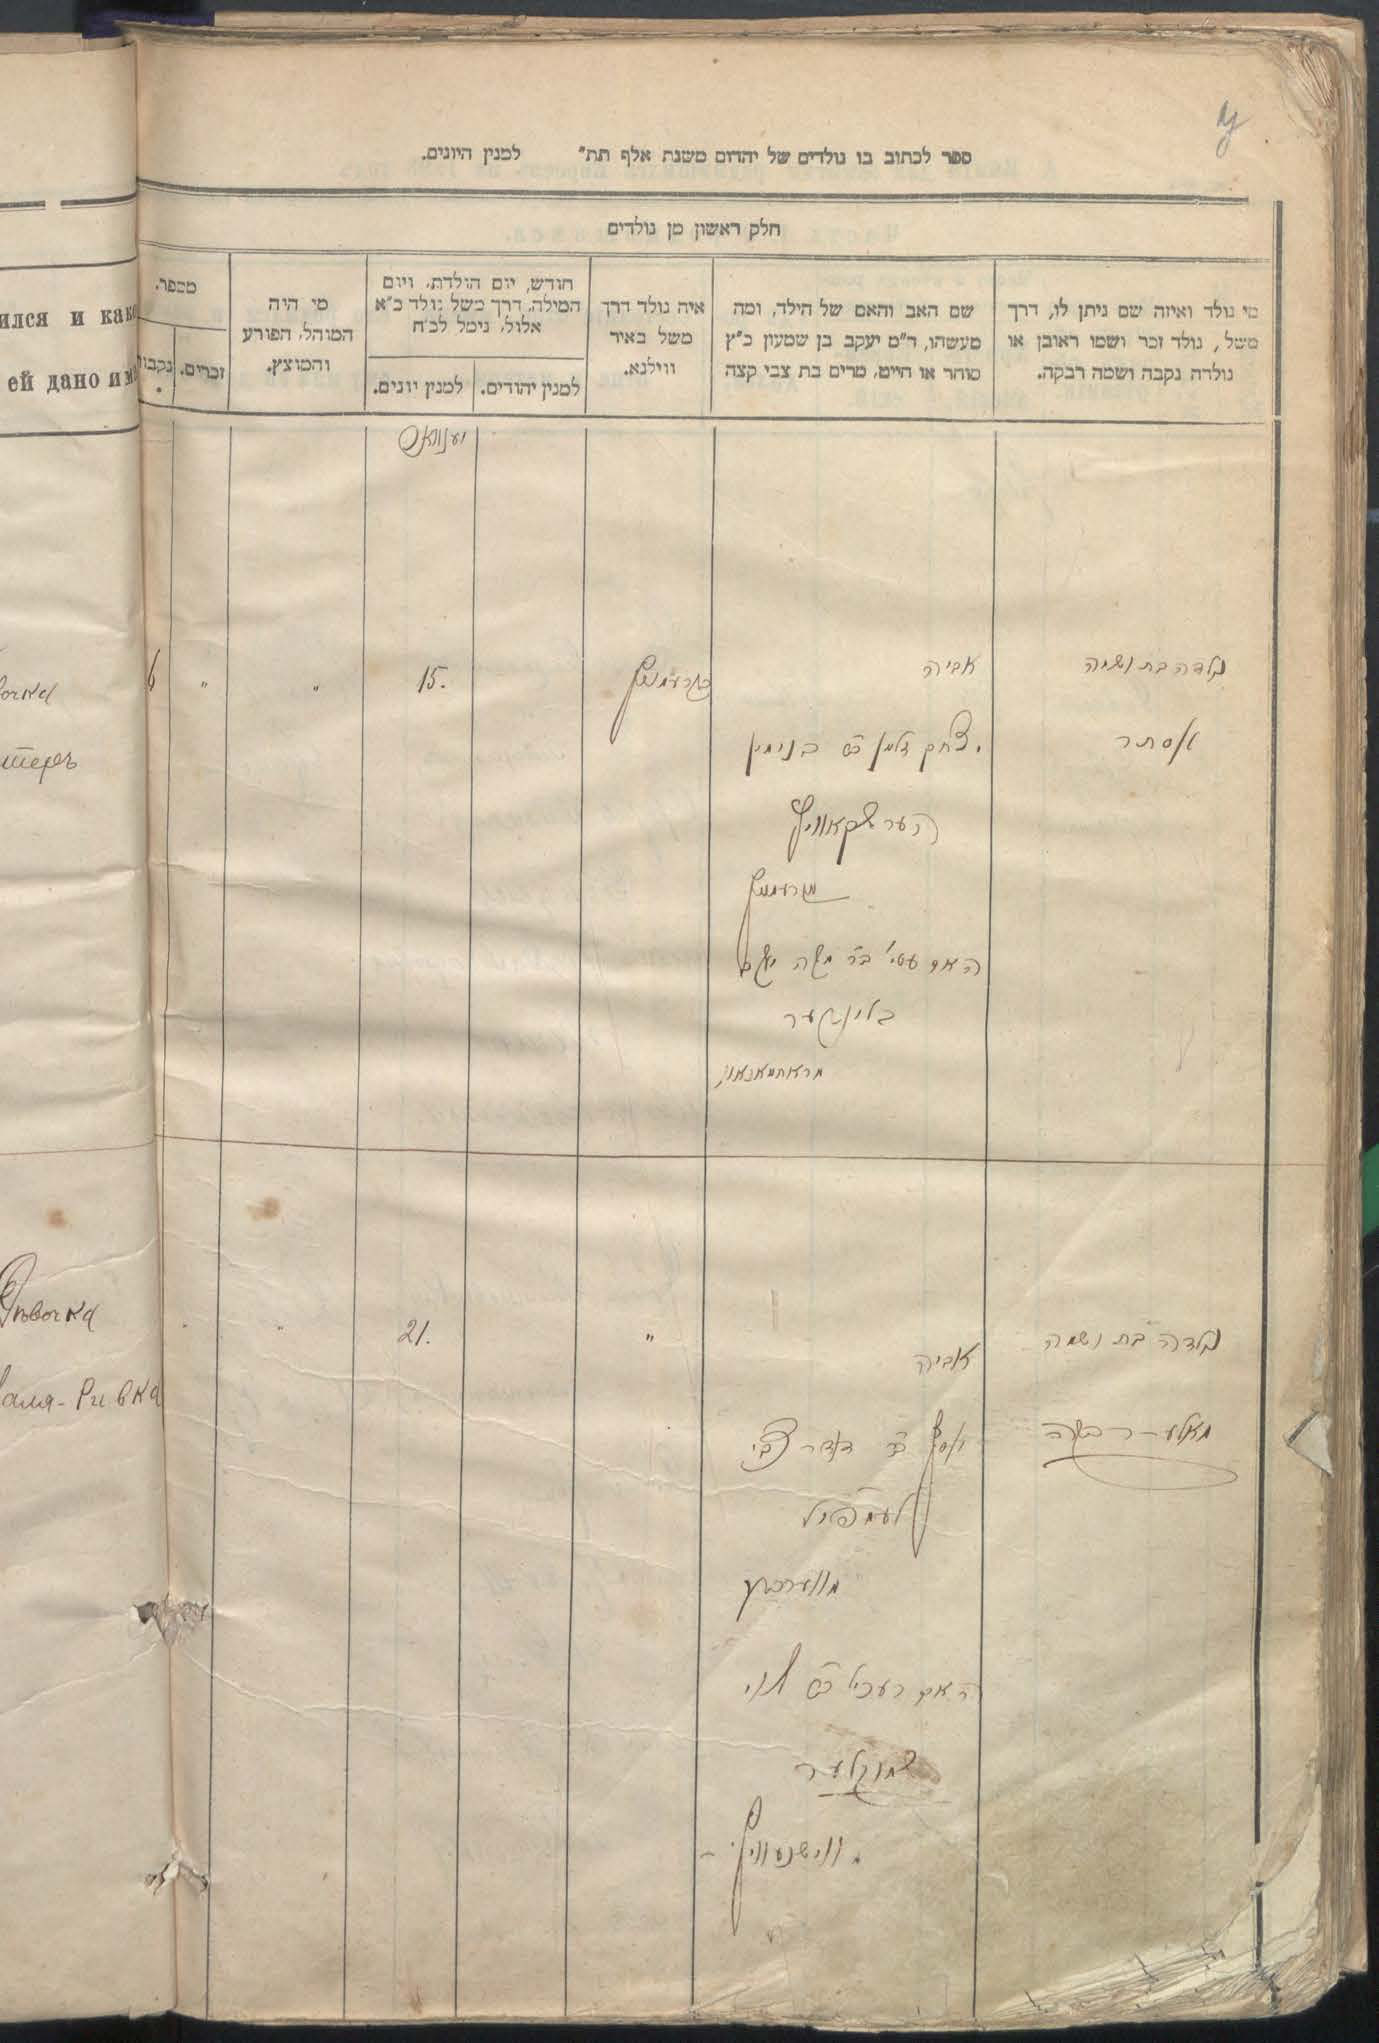 ספר לכתוב בו נולדים של יהדום משנת אלף תת״ למנין היונים.
חלק ראשון מן נולדים
מי נולד ואיזה שם ניתן לו, דרך
משל, נולד זכר ושמו ראובן או
נולדה נקבה ושמה רבקה.
שם האב והאם של הילד, ומה
מעשהו, ד״מ יעקב בן שמעון כ״ץ
סוחר או חייט, מרים בת צבי קצה
איה נולד דרך
משל באיר
ווילנא.
חודש, יום הולדת, ויום
המילה, דרך משל נולד כ״א
אלול, נימל לכ״ח
למנין יהודים.
למנין יונים.
מי היה
המוהל, הפורע
והמוצץ.
מספר.
זכרים.
נקבות
ился и како
ей дано имя
יענוואר
נולדה בת ושמה
אסתר
אביה
יצחק זלמן ב״ר בנימין
הערשקאוויץ
קרעמניץ
15.
"
"
6
вочка
стеръ
מקרעמניץ
האם עטי' ב״ר משה יעקב
בלינדער
נולדה בת ושמה
מאלע-רבקה
אביה
יוסף ב״ר דוד צבי
"
21.
"
"
Дѣвочка
Маля-Ривка
האם רעכיל ב״ר
מווישנעוויץ